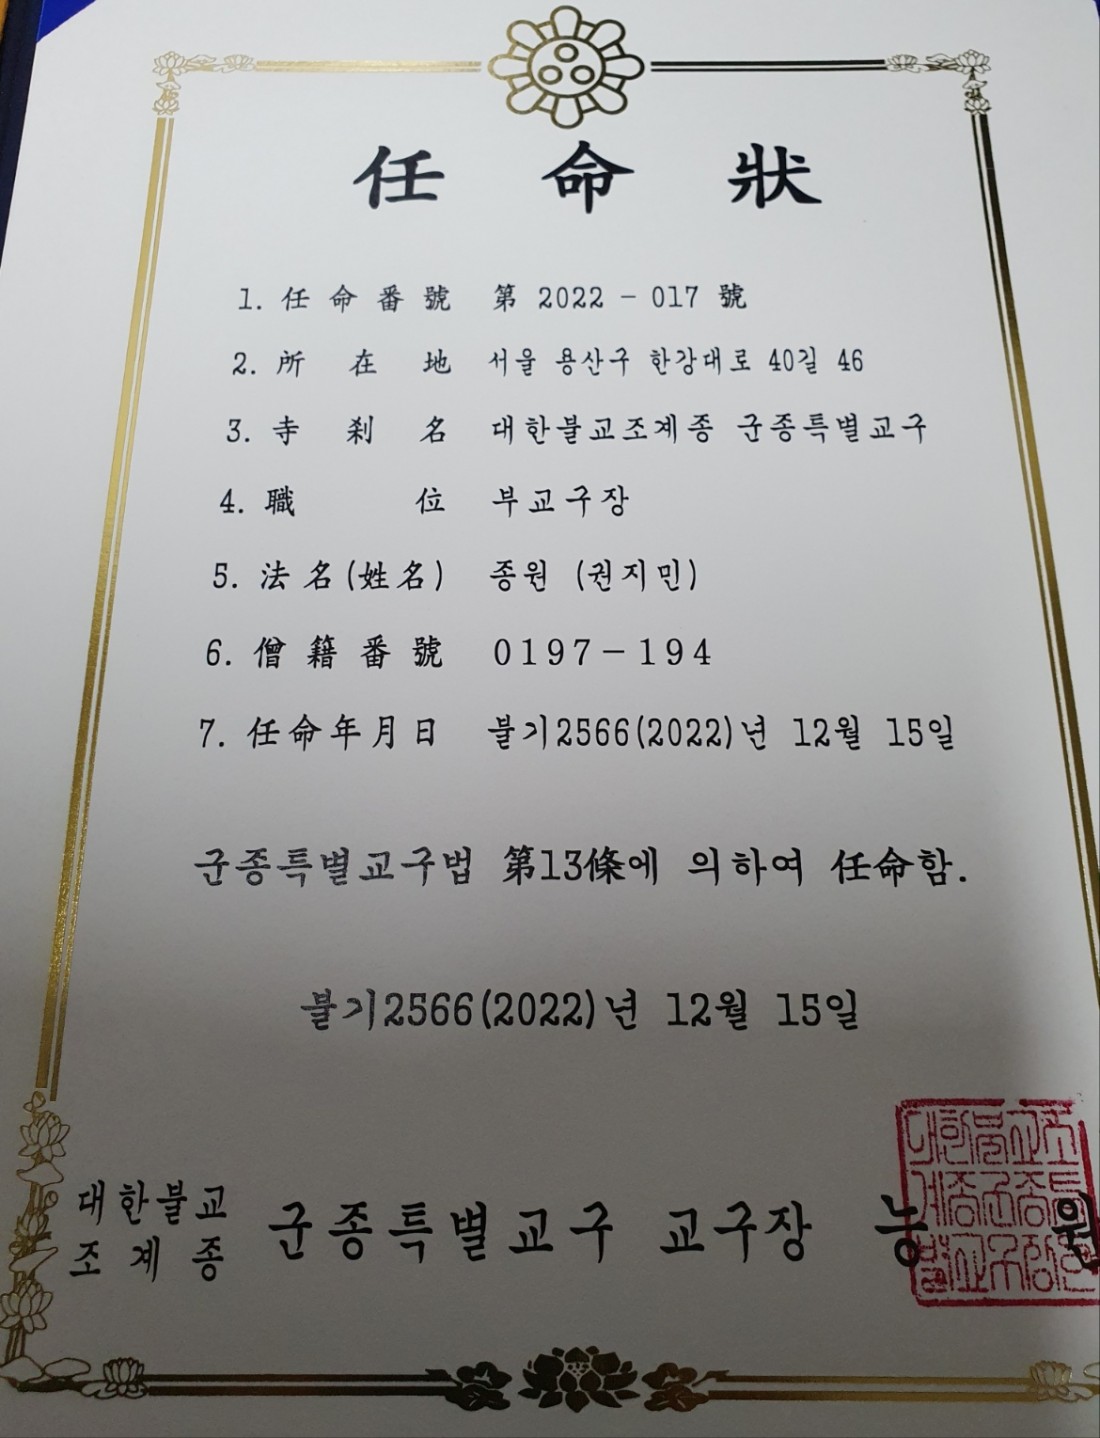 任命狀
1. 任命番號 第 2022 - 017 號
2. 所在地 서울 용산구 한강대로 40길 46
3. 寺刹名 대한불교조계종 군종특별교구
4. 職位 부교구장
5. 法名(姓名) 종원 (권지민)
6. 僧籍番號 0197-194
7. 任命年月日 불기2566(2022)년 12월 15일
군종특별교구법 第13條에 의하여 任命함.
불기2566(2022)년 12월 15일
대한불교
조계종 군종특별교구 교구장 능원
대한불교조
계종군종특
별교구장인